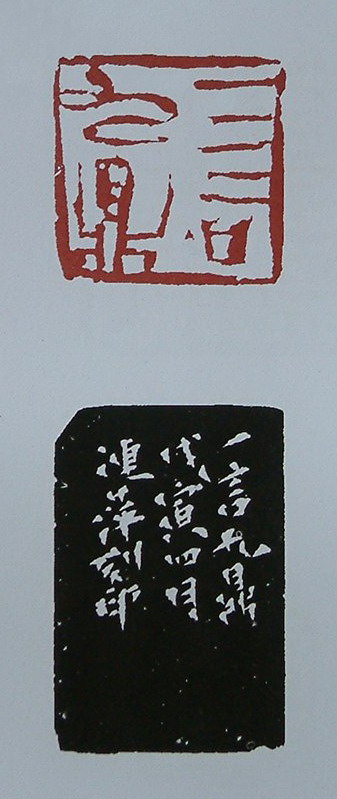 一言
九鼎
一言九鼎
戊寅四月
連萍刻印